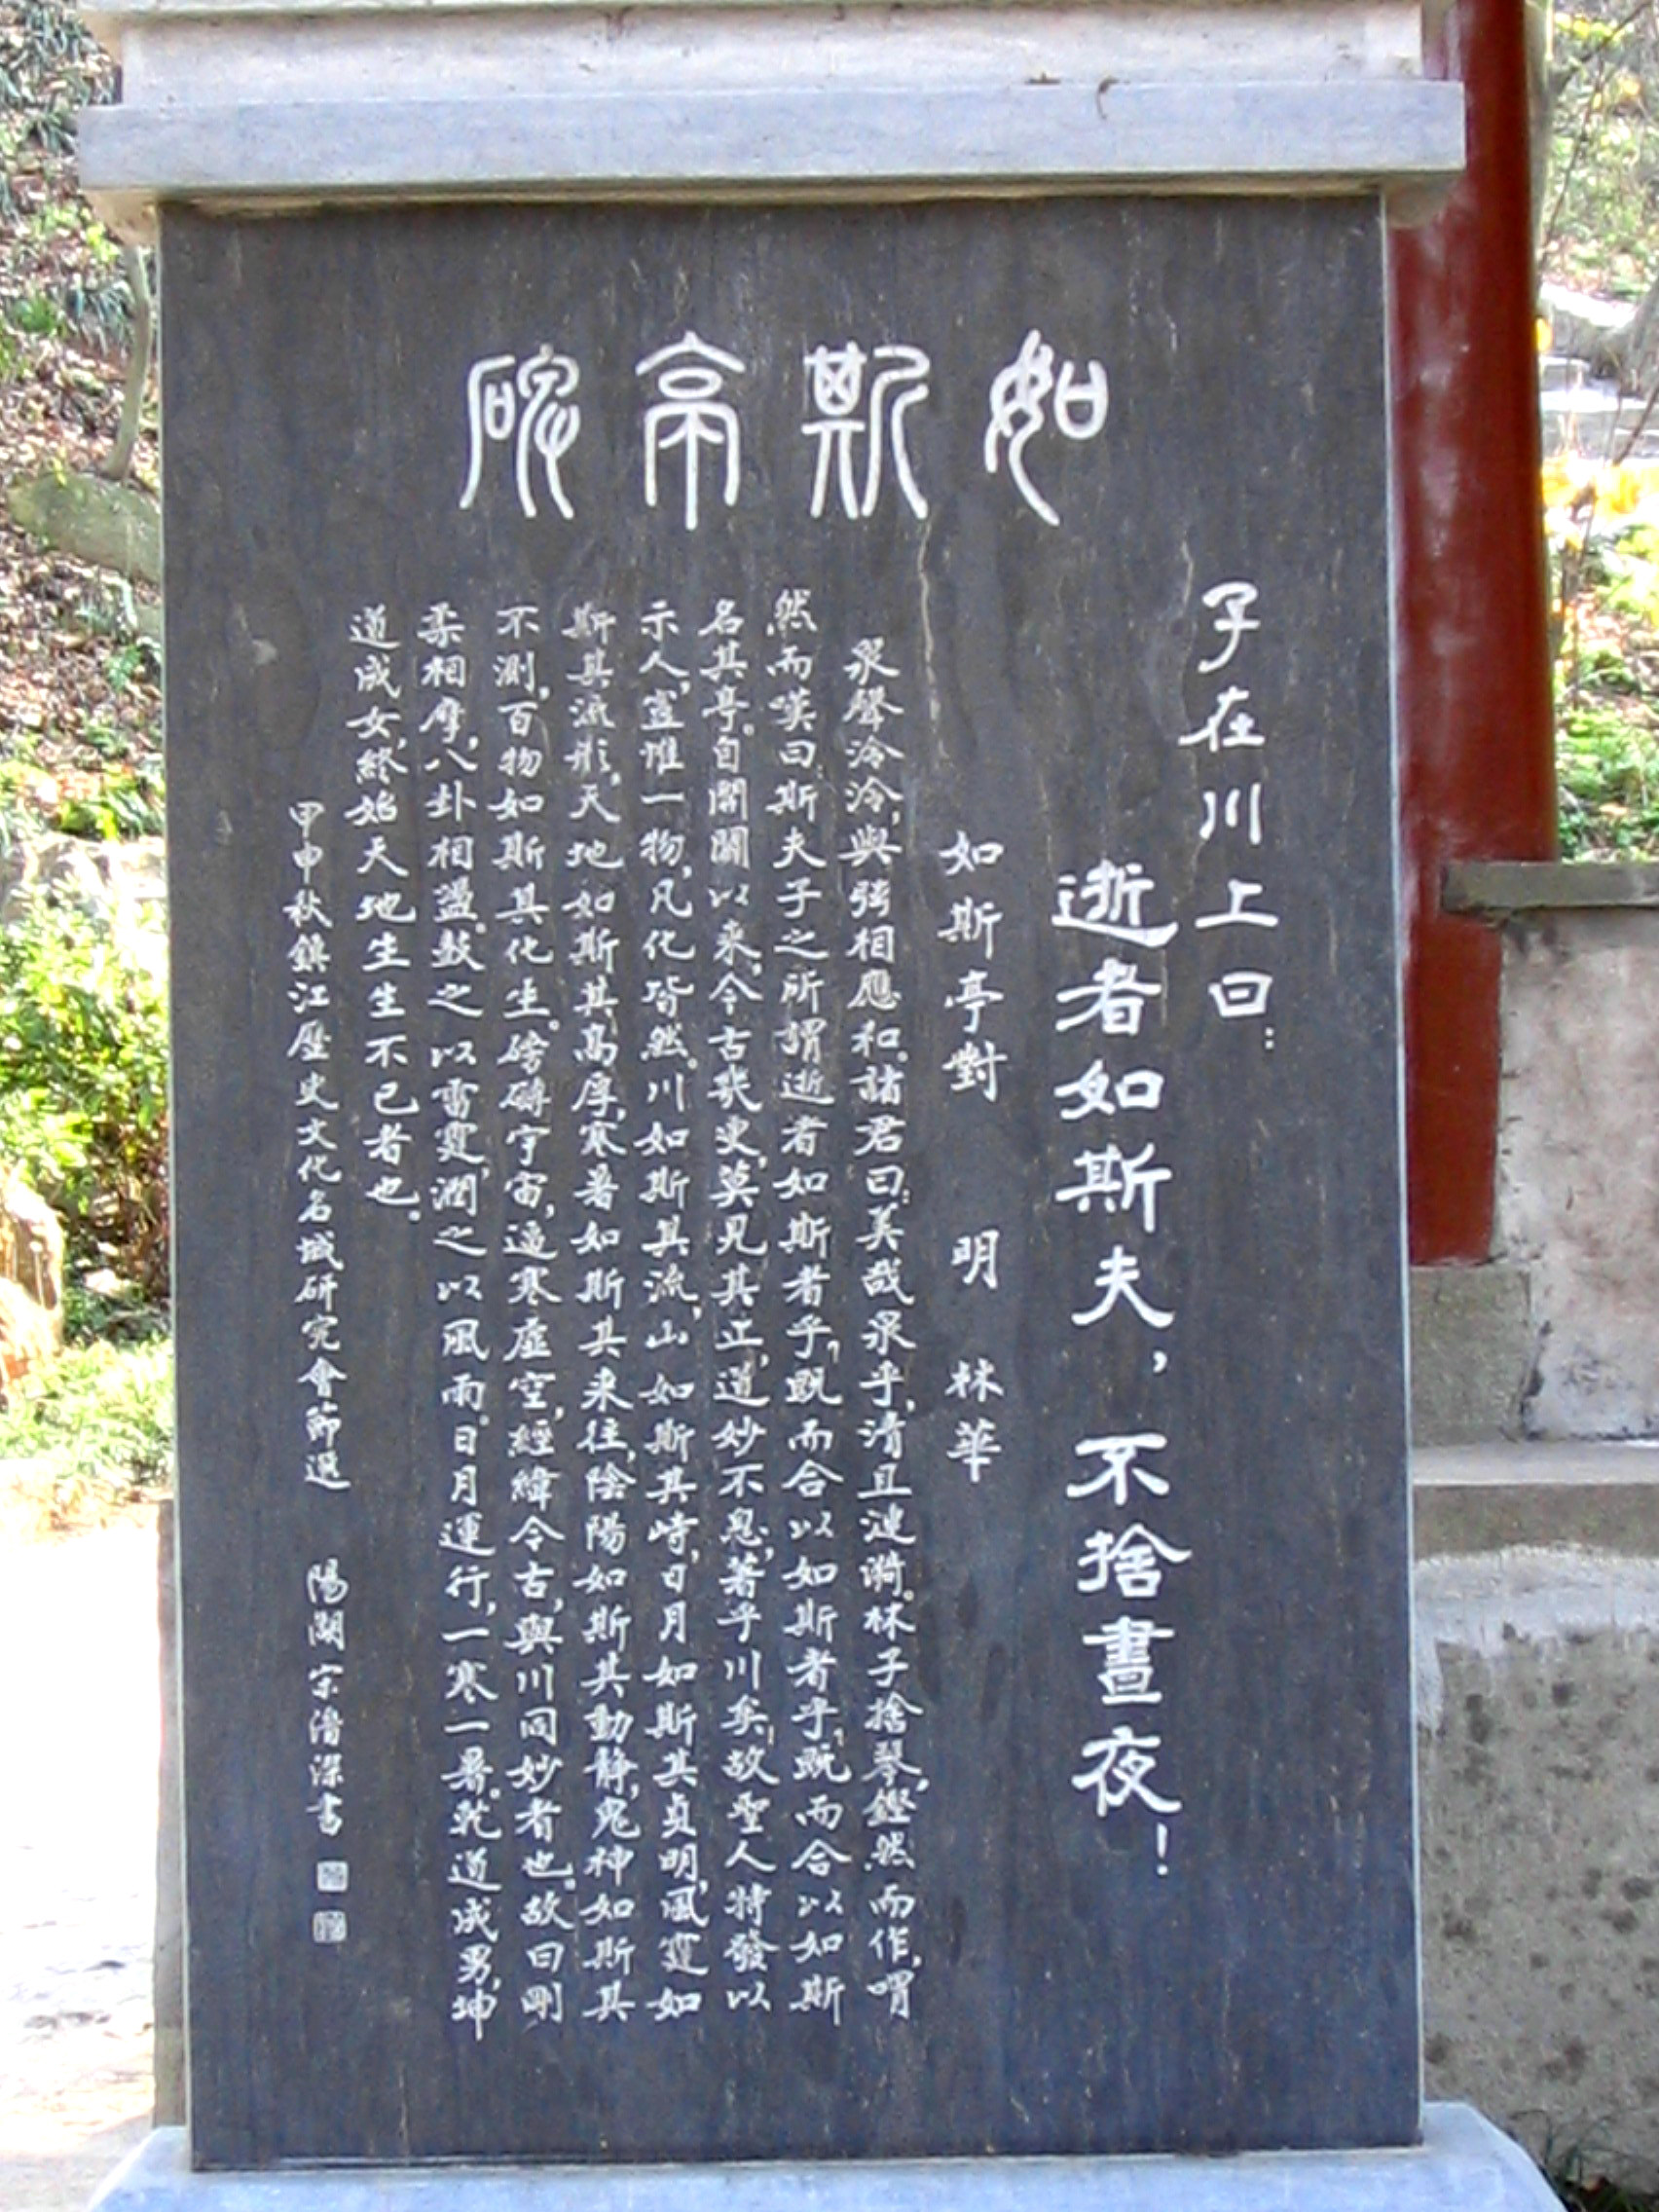 如斯亭碑
子在川上曰：
逝者如斯夫，不捨晝夜！
如斯亭對 明 林華
泉聲泠泠，與弦相應和。諸君曰：美哉泉乎，清且漣漪。林子捨琴，鏗然而作，喟
然而嘆曰：斯夫子之所謂逝者如斯者乎，既而合以如斯者乎，既而合以如斯
名其亭。自開闢以來，今古幾更，莫見其止，道妙不息，著乎川矣，故聖人特發以
示人，豈惟一物，凡化皆然。川如斯其流，山如斯其峙，日月如斯其貞明，風霆如
斯其流形，天地如斯其高厚，寒暑如斯其來往，陰陽如斯其動靜，鬼神如斯其
不測，百物如斯其化生。磅礴宇宙，逼寒虛空，經緯今古，與川同妙者也。故曰剛
柔相摩，八卦相盪。鼓之以雷霆，潤之以風雨。日月運行，一寒一暑。乾道成男，坤
道成女，終始天地生生不已者也。
甲申秋鎮江歷史文化名城研究會節選 陽湖宗清深書